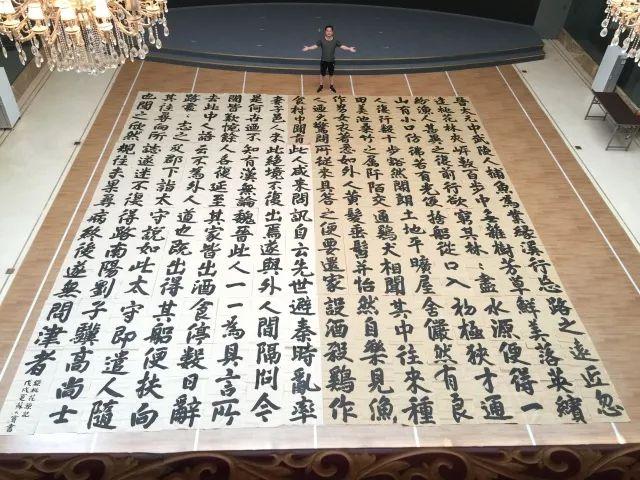 晉太元中武陵人捕魚為業緣溪行忘路之遠近忽
逢桃花林夾岸數百步中無雜樹芳草鮮美落英繽
紛漁人甚異之復前行欲窮其林〻盡水源便得一
山有小口彷彿若有光便捨船從口入初極狹才通
人復行數十步豁然開朗土地平曠屋舍儼然有良
田美池桑竹之屬阡陌交通鷄犬相聞其中往來種
作男女衣著悉如外人黃髮垂髫並怡然自樂見漁
人乃大驚問所從來具答之便要還家設酒殺鷄作
食村中聞有此人咸來問訊自云先世避秦時亂率
妻子邑人來此絕境不復出焉遂與外人間隔問今
是何世乃不知有漢無論魏晉此人一一為具言所
聞皆歎惋餘人各復延至其家皆出酒食停數日辭
去此中人語云不為外人道也既出得其船便扶向
路處〻志之及郡下詣太守說如此太守即遣人隨
其往尋向所誌遂迷不復得路南陽劉子驥高尚士
也聞之欣然規往未果尋病終後遂無問津者
錄桃花源記
戊戌夏書